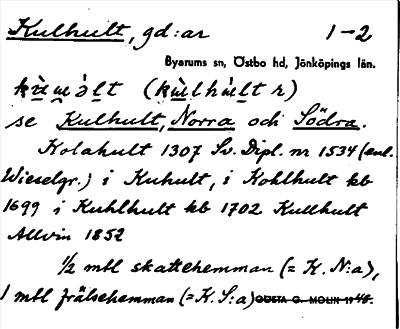 Kulhult, gd:ar 1-2
Byarums sn, Östbo hd, Jönköpings län.
(kùlhùlt r)
se Kulhult, Norra och Södra.
Kolahult 1307 Sv. Dipl. nr 1534 (enl.
Wieselgr.) i Kuhult, i Kohlhult kb
1699 i Kuhlhult kb 1702 Kullhult
Allvin 1852
1/2 mtl skattehemman (= K. N:a),
1 mtl frälsehemman (= K. S:a) GÖSTA G. MOLIN 1946.